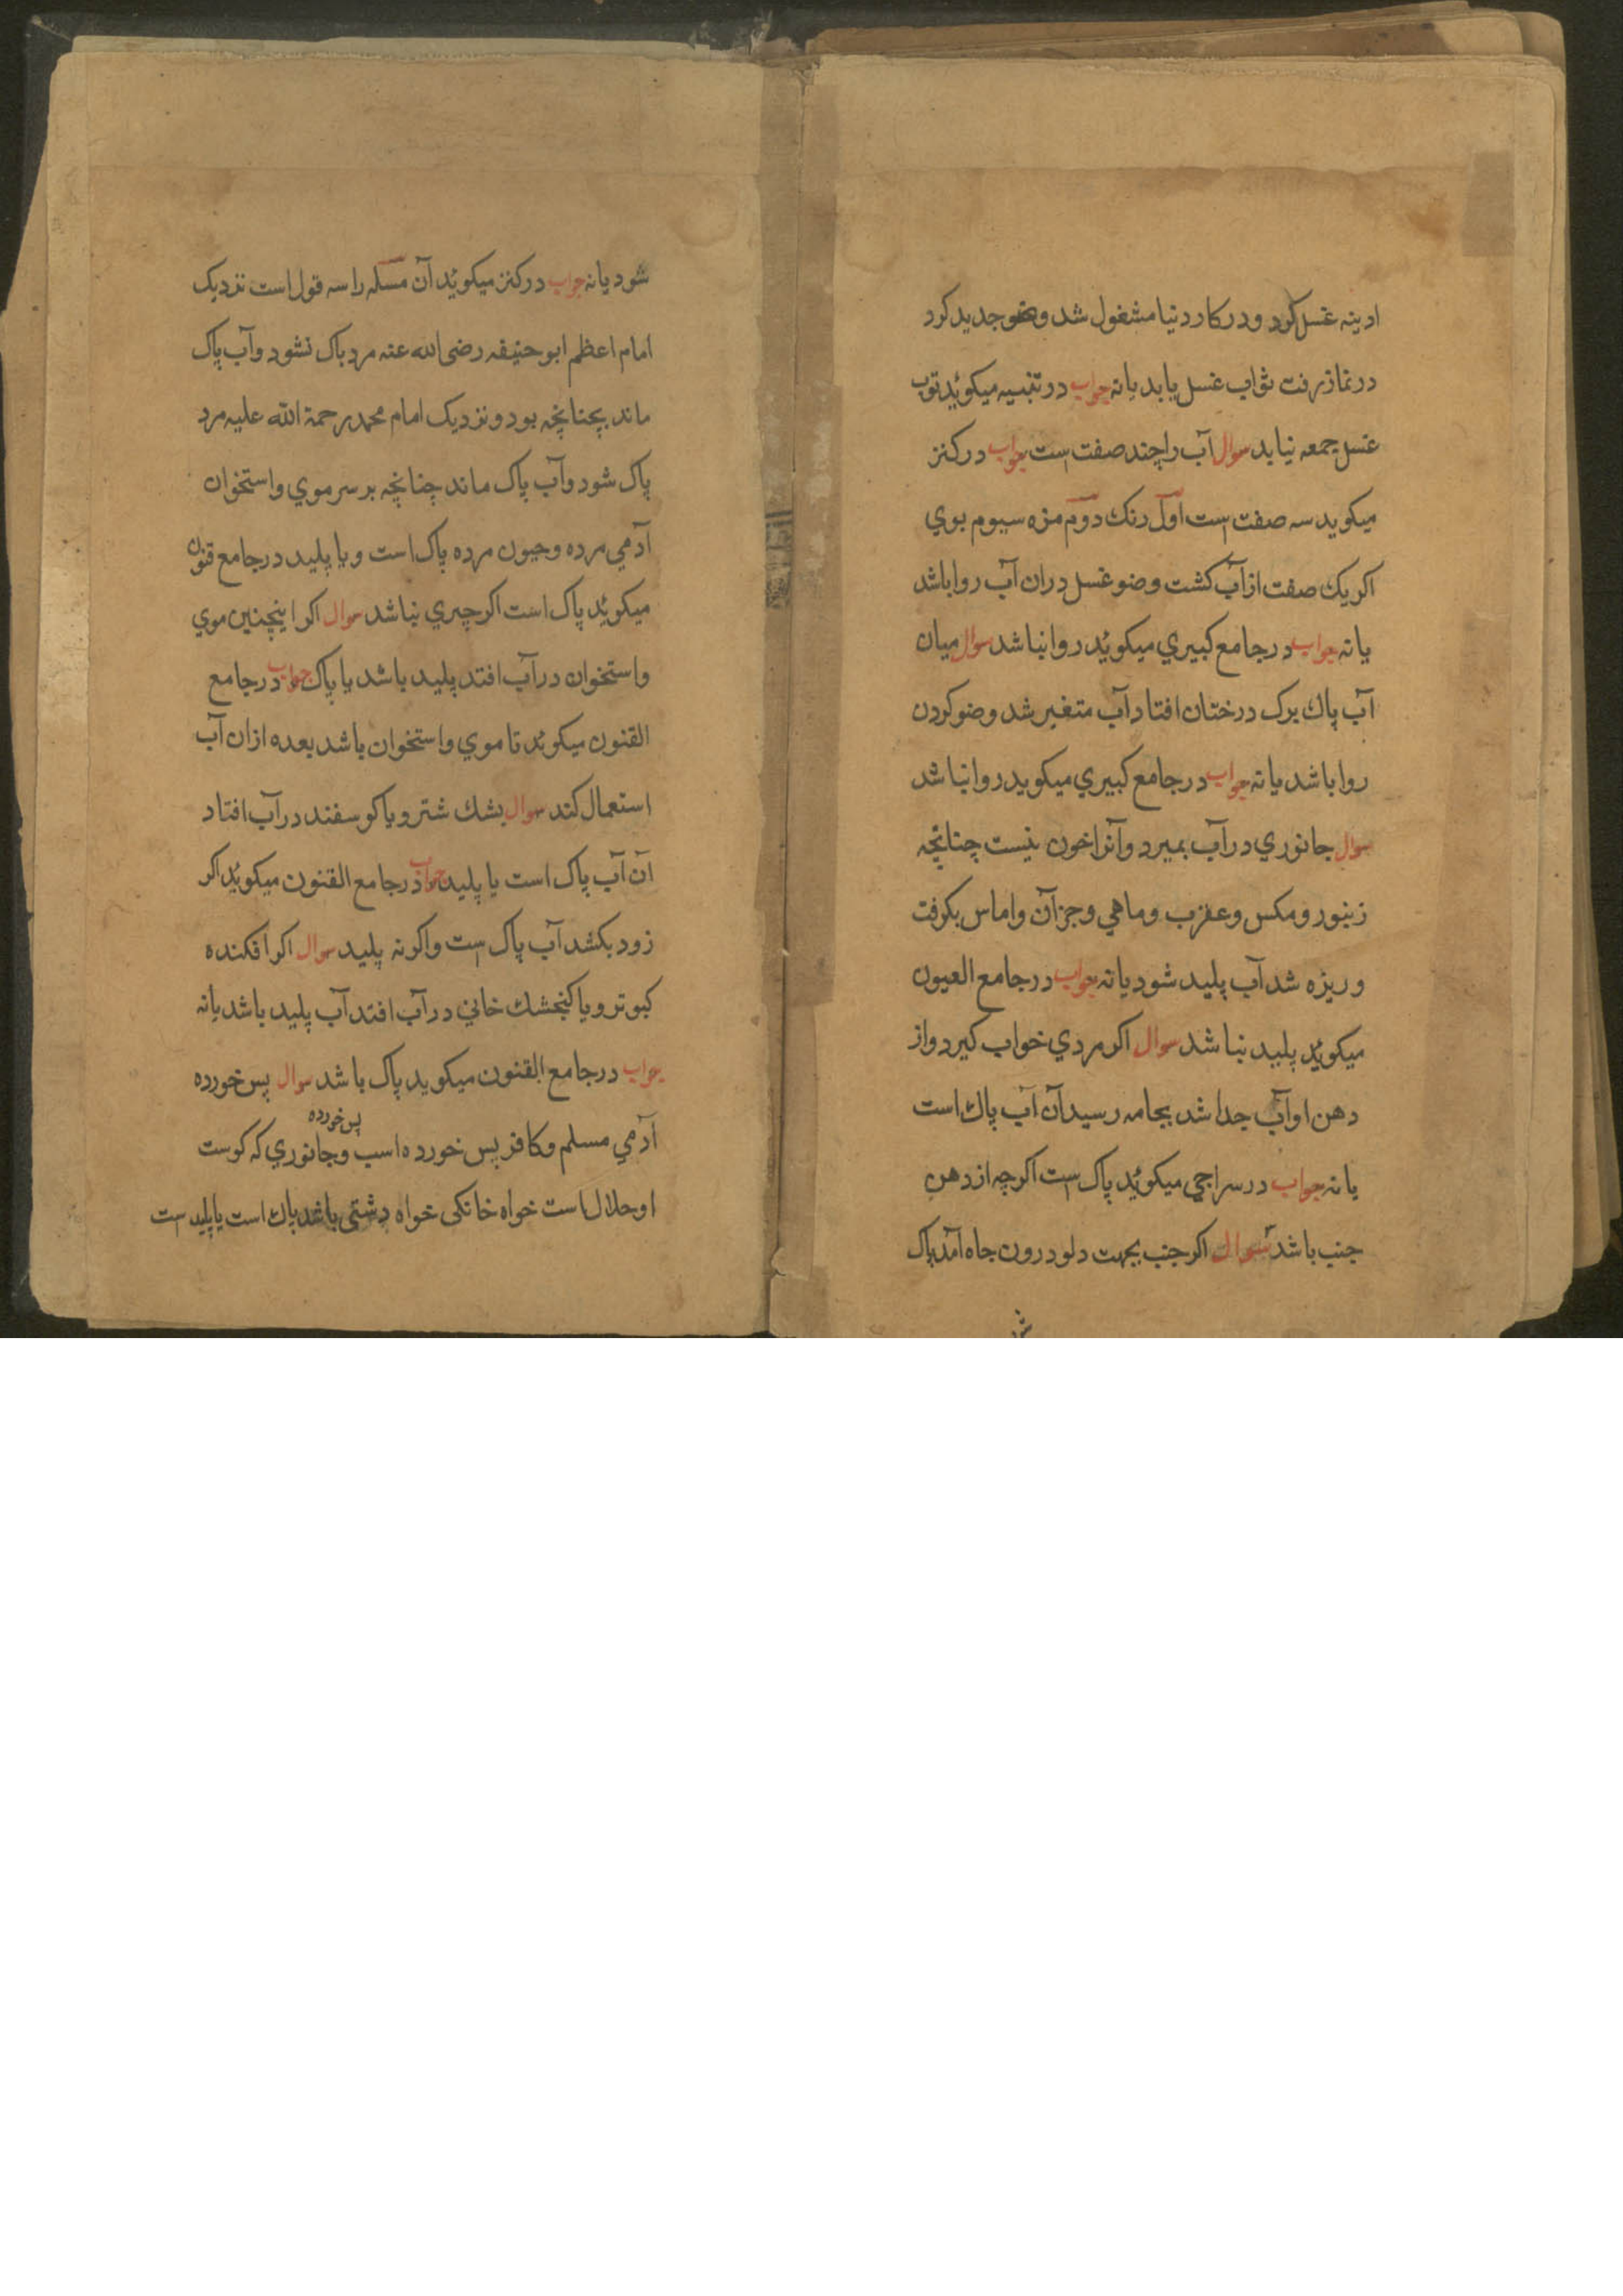 ادینه غسل کرد ودر کار دنیا مشغول شد وضو جدید کرد
در نماز رفت ثواب غسل یابد یا نه جواب در تنبیه میکوئد ثواب
غسل جمعه نیابد سوال آب را چند صفت است جواب در کنز
میکوید سه صفت است اول رنک دوم مزه سیوم بوی
اکر یک صفت از آب کشت وضو غسل دران آب روا باشد
یا نه جواب در جامع کبیری میکوئد روا نباشد سوال میان
آب پاک برک درختان افتاد آب متغیر شد وضو کردن
روا باشد یا نه جواب در جامع کبیری میکوید روا نباشد
سوال جانوری در آب بمیرد وآنرا خون نیست چنانچه
زنبور ومکس وعقرب وماهی وجز آن واماس بکرفت
وریزه شد آب پلید شود یا نه جواب در جامع العیون
میکوئد پلید نباشد سوال اکر مردی خواب کیرد واز
دهن او آب جدا شد بجامه رسید آن آب پاک است
یا نه جواب در سراجی میکوئد پاک است اکرچه از دهن
جنب باشد سوال اکر جنب بجهت دلو درون چاه آمد پاک
شود یا نه جواب در کنز میکوئد آن مسئله را سه قول است نزدیک
امام اعظم ابو حنیفه رضی الله عنه مرد پاک نشود وآب پاک
ماند چنانچه بود ونزدیک امام محمد رحمة الله علیه مرد
پاک شود وآب پاک ماند چنانچه بر سر موی واستخوان
آدمی مرده وحیون مرده پاک است ویا پلید در جامع قنون
میکوئد پاک است اکر چربی نباشد سوال اکر اینچنین موی
واستخوان در آب افتد پلید باشد یا پاک جواب در جامع
القنون میکوئد تا موی واستخوان باشد بعده ازان آب
استعمال کند سوال پشک شتر ویا کوسفند در آب افتاد
آن آب پاک است یا پلید جواب در جامع القنون میکوئد اکر
زود بکشد آب پاک است واکر نه پلید سوال اکر افکنده
کبوتر ویا کنجشک خانی در آب افتد آب پلید باشد یا نه
جواب در جامع القنون میکوید پاک باشد سوال پس خورده
آدمی مسلم وکافر پس خورده اسب پس خورده وجانوری که کوست
او حلال است خواه خانکی خواه دشتی باشد پاک است یا پلید است